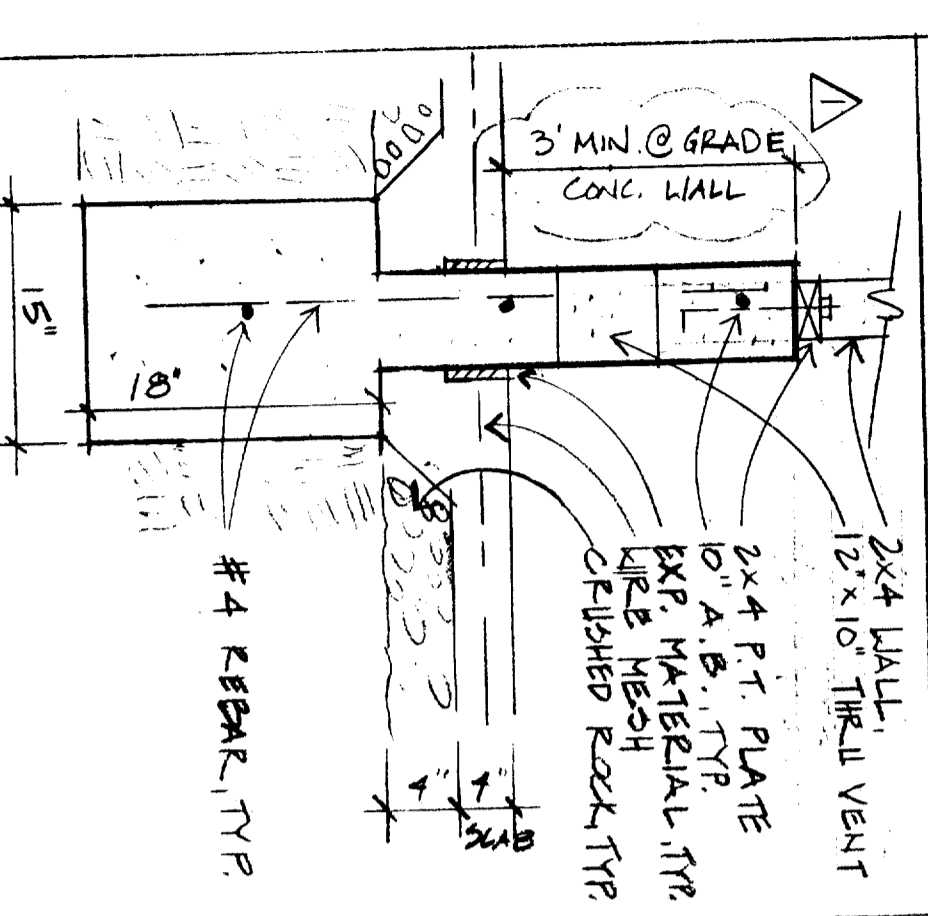 1
3' MIN. @ GRADE
CONC. WALL
2x4 WALL,
12" x 10" THRU VENT
2x4 P.T. PLATE
10" A.B., TYP.
EXP. MATERIAL, TYP.
WIRE MESH
CRUSHED ROCK, TYP.
#4 REBAR, TYP.
15"
18"
8"
4"
4"
SLAB